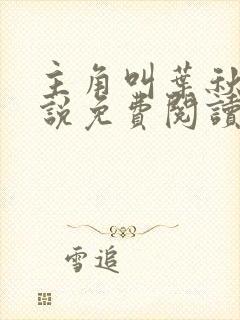 主角叫葉秋
說免費閱讀
雪追